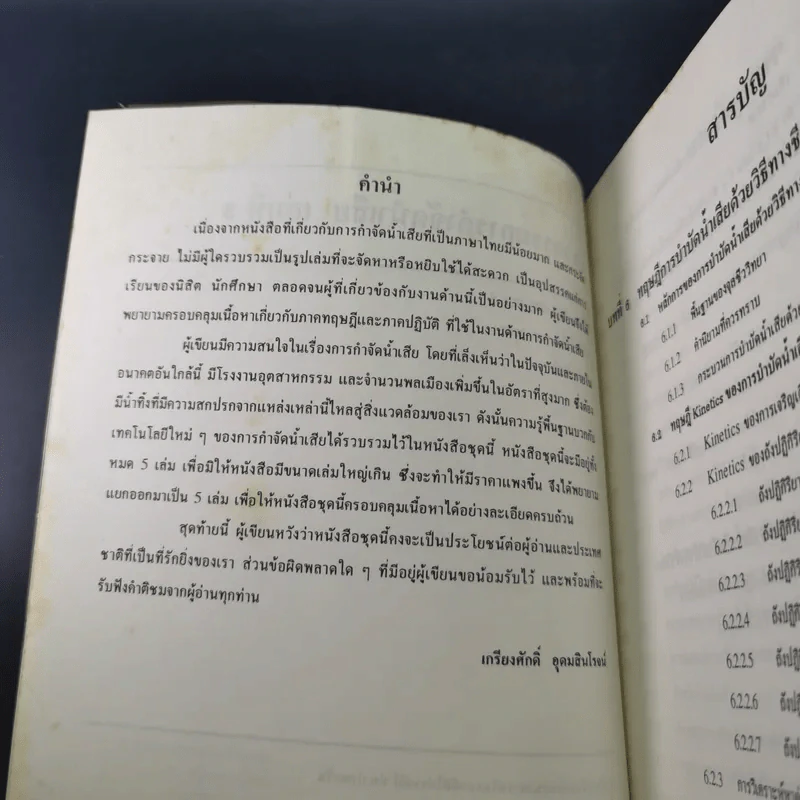 คำนำ
เนื่องจากหนังสือที่เกี่ยวกับการกำจัดน้ำเสียที่เป็นภาษาไทยมีน้อยมาก และกระจัด
กระจาย ไม่มีผู้ใดรวบรวมเป็นรูปเล่มที่จะจัดหาหรือหยิบใช้ได้สะดวก เป็นอุปสรรคต่อการ
เรียนของนิสิต นักศึกษา ตลอดจนผู้ที่เกี่ยวข้องกับงานด้านนี้เป็นอย่างมาก ผู้เขียนจึงได้
พยายามครอบคลุมเนื้อหาเกี่ยวกับภาคทฤษฎีและภาคปฏิบัติ ที่ใช้ในงานด้านการกำจัดน้ำเสีย
ผู้เขียนมีความสนใจในเรื่องการกำจัดน้ำเสีย โดยที่เล็งเห็นว่าในปัจจุบันและภายใน
อนาคตอันใกล้นี้ มีโรงงานอุตสาหกรรม และจำนวนพลเมืองเพิ่มขึ้นในอัตราที่สูงมาก ซึ่งต้อง
มีน้ำทิ้งที่มีความสกปรกจากแหล่งเหล่านี้ไหลสู่สิ่งแวดล้อมของเรา ดังนั้นความรู้พื้นฐานบวกกับ
เทคโนโลยีใหม่ ๆ ของการกำจัดน้ำเสียได้รวบรวมไว้ในหนังสือชุดนี้ หนังสือชุดนี้จะมีอยู่ทั้ง
หมด 5 เล่ม เพื่อมิให้หนังสือมีขนาดเล่มใหญ่เกิน ซึ่งจะทำให้มีราคาแพงขึ้น จึงได้พยายาม
แยกออกมาเป็น 5 เล่ม เพื่อให้หนังสือชุดนี้ครอบคลุมเนื้อหาได้อย่างละเอียดครบถ้วน
สุดท้ายนี้ ผู้เขียนหวังว่าหนังสือชุดนี้คงจะเป็นประโยชน์ต่อผู้อ่านและประเทศ
ชาติที่เป็นที่รักยิ่งของเรา ส่วนข้อผิดพลาดใด ๆ ที่มีอยู่ผู้เขียนขอน้อมรับไว้ และพร้อมที่จะ
รับฟังคำติชมจากผู้อ่านทุกท่าน
เกรียงศักดิ์ อุดมสินโรจน์
สารบัญ
บทที่ 6 ทฤษฎีการบำบัดน้ำเสียด้วยวิธีทางชี
6.1 หลักการของการบำบัดน้ำเสียด้วยวิธีทาง
6.1.1 พื้นฐานของจุลชีววิทยา
6.1.2 คำนิยามที่ควรทราบ
6.1.3 กระบวนการบำบัดน้ำเสียด้วย
6.2 ทฤษฎี Kinetics ของการบำบัดน้ำเสี
6.2.1 Kinetics ของการเจริญเติ
6.2.2 Kinetics ของถังปฏิกิริ
6.2.2.1 ถังปฏิกิริยา
6.2.2.2 ถังปฏิกิริ
6.2.2.3 ถังปฏิกิริ
6.2.2.4 ถังปฏิกิริ
6.2.2.5 ถังปฏิกิ
6.2.2.6 ถังปฏิกิ
6.2.2.7 ถังป
6.2.3 การวิเคราะห์หาค่า